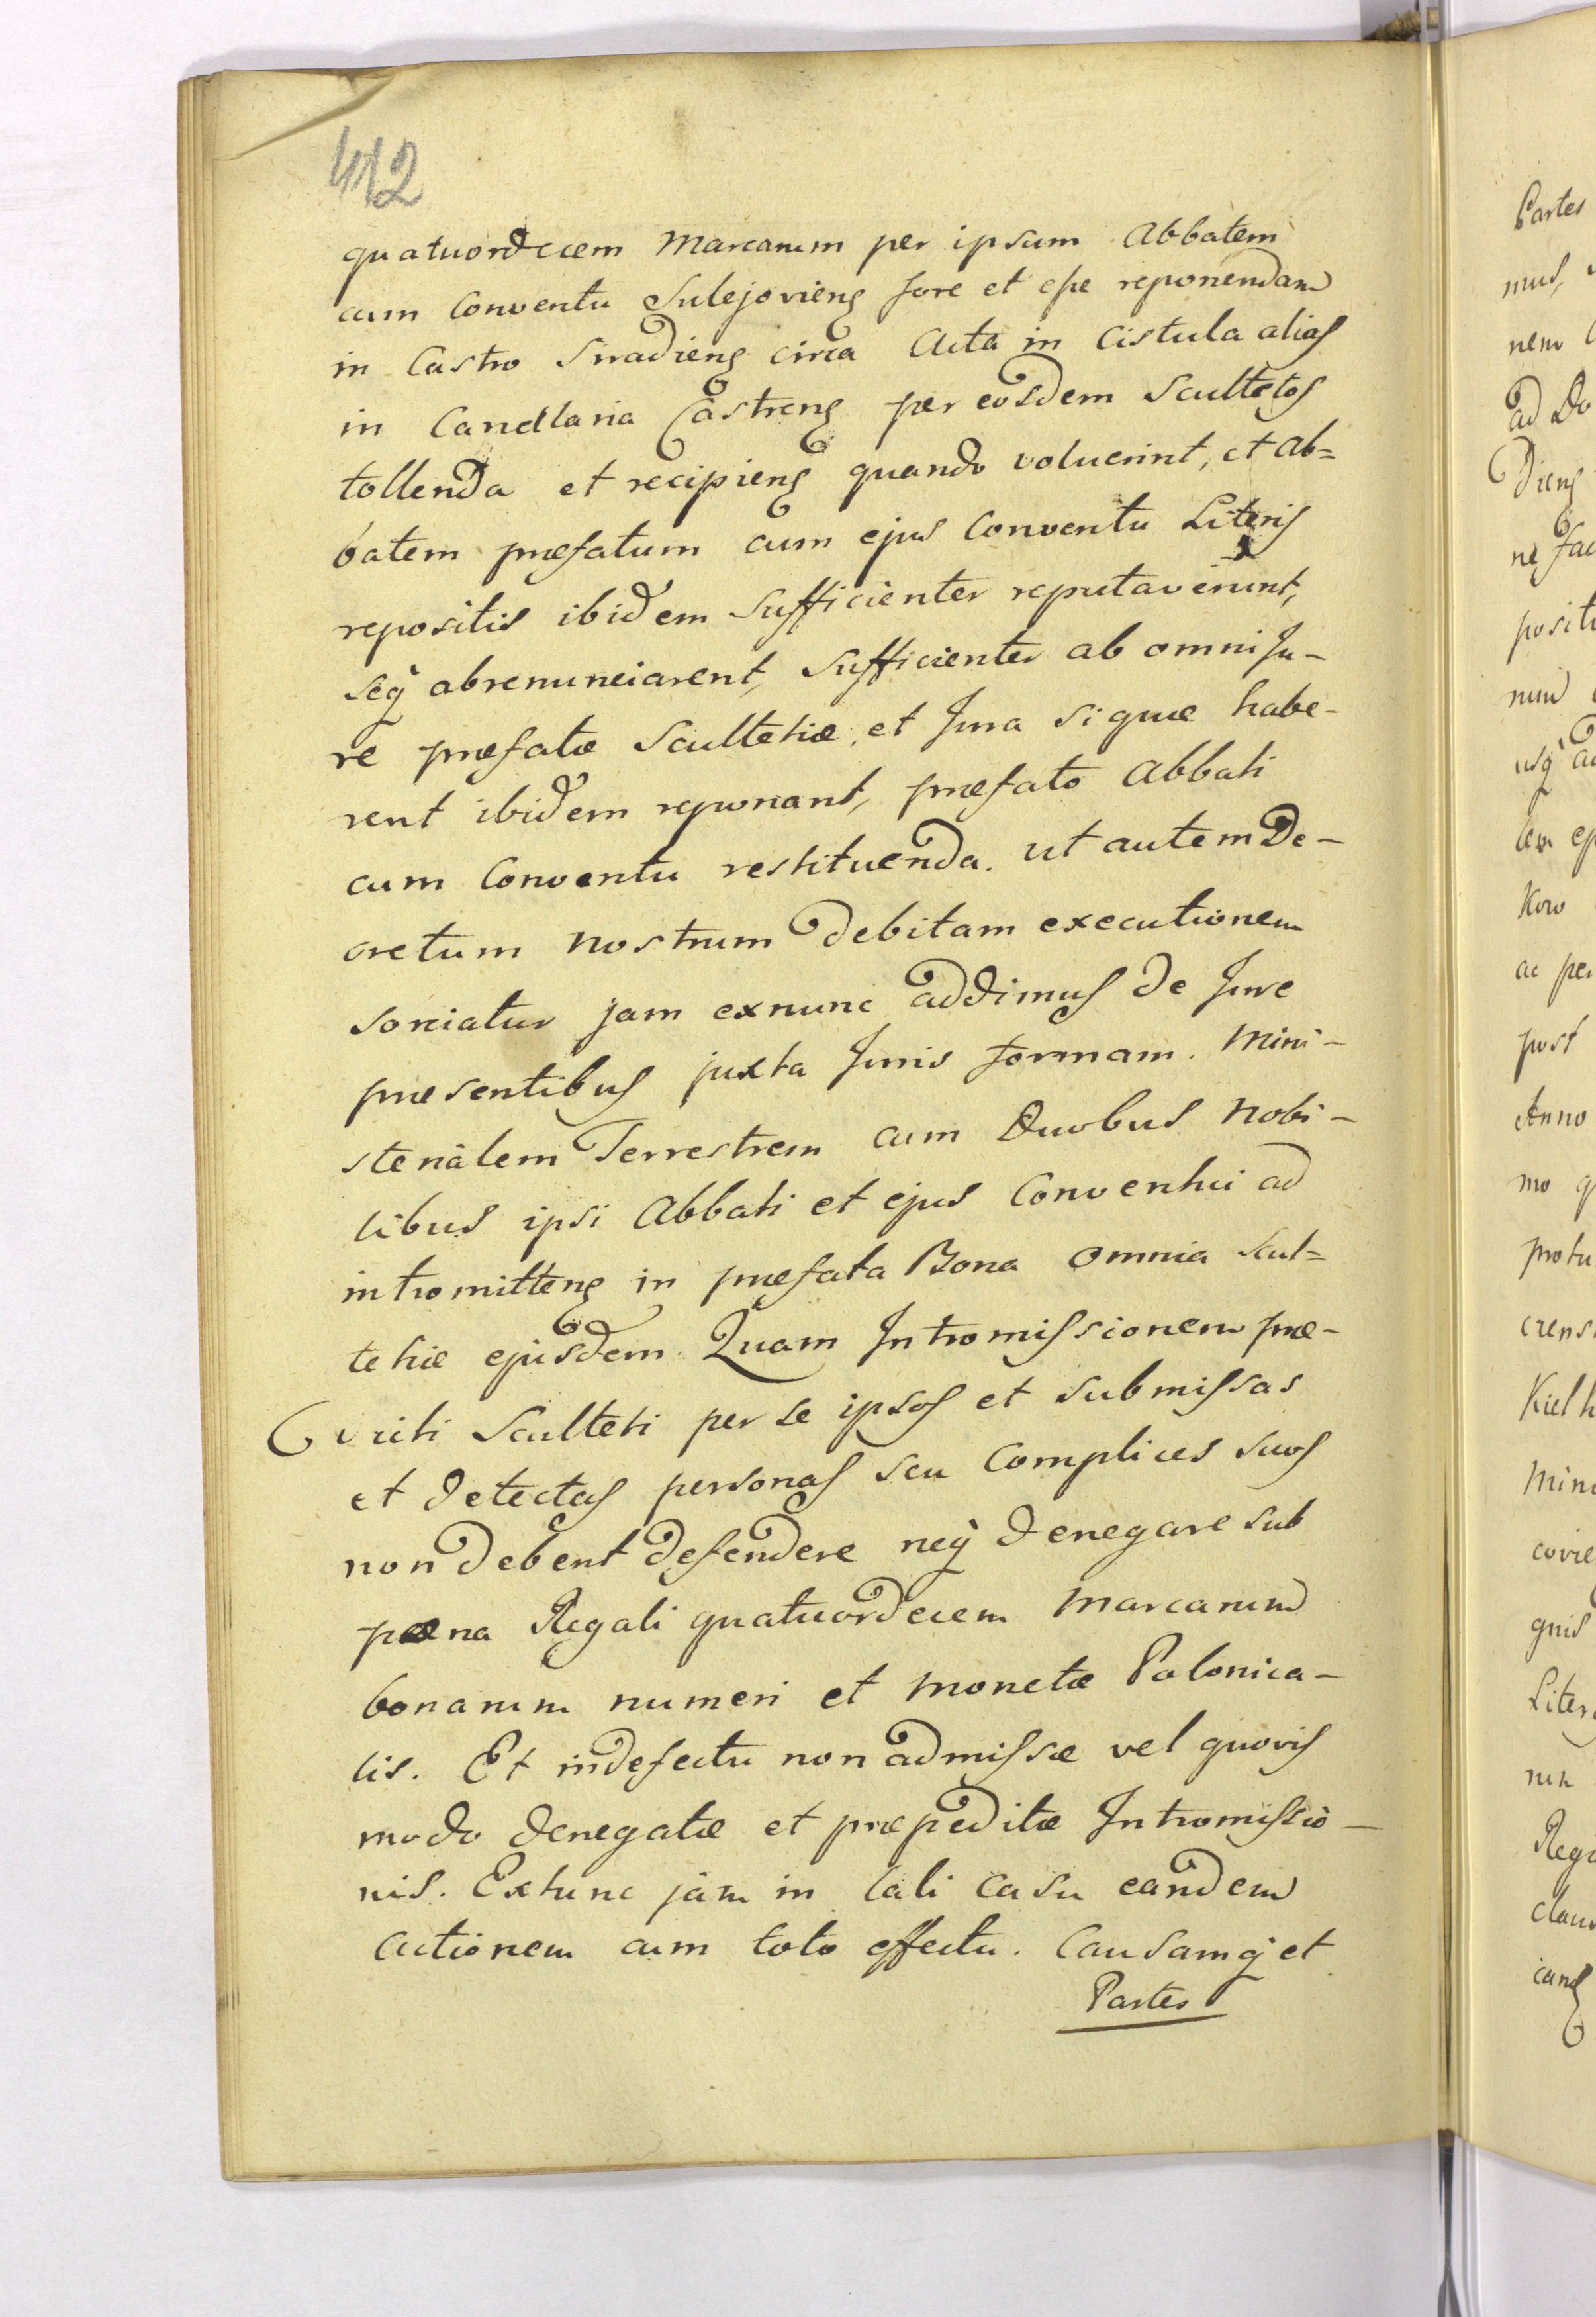 412
quatuordecem Marcarum per ipsum Abbatem
cum Conventu Sulejovieng fore et esse reponendam
in Castro Siradieng circa Acta in Cistula alias
in Cancllaria Castreng per eosdem Scultetos
tollenda et recipieng quando voluerint, et Ab=
batem præfatum cum ejus Conventu Literis
repositis ibidem sufficienter reputaverint,
seq́ abrenunciarent, sufficienter ab omni Ju-
re præfatæ Scultetiæ, et Jura si quæ habe-
rent ibidem reponant, præfato Abbati
cum Conventu restituenda. ut autem De-
cretum nostrum debitam executionem
sorciatur jam exnunc addimus de Jure
præsentibus juxta Juris formam. Mini-
sterialem Terrestrem cum Duobus Nobi-
libus ipsi Abbati et ejus Conventui ad
intromitteng in præfata Bona omnia Scul=
tetiæ ejusdem. Quam Intromissionem præ-
victi Sculteti per se ipsos et submissas
et detectas personas seu Complices suos
non debent defendere neq́ denegare sub
pæna Regali quatuordecem Marcarum
bonarum numeri et Monetæ Polonica-
lis. Et indefectu non admissæ vel quovis
modo denegatæ et præpeditæ Intromissio-
nis. Extunc jam in tali casu eandem
actionem cum toto effectu. Causamq́ et
Partes
Partes
mus,
nem
ad Do
dieng
posit
ac per
post
Anno
mo